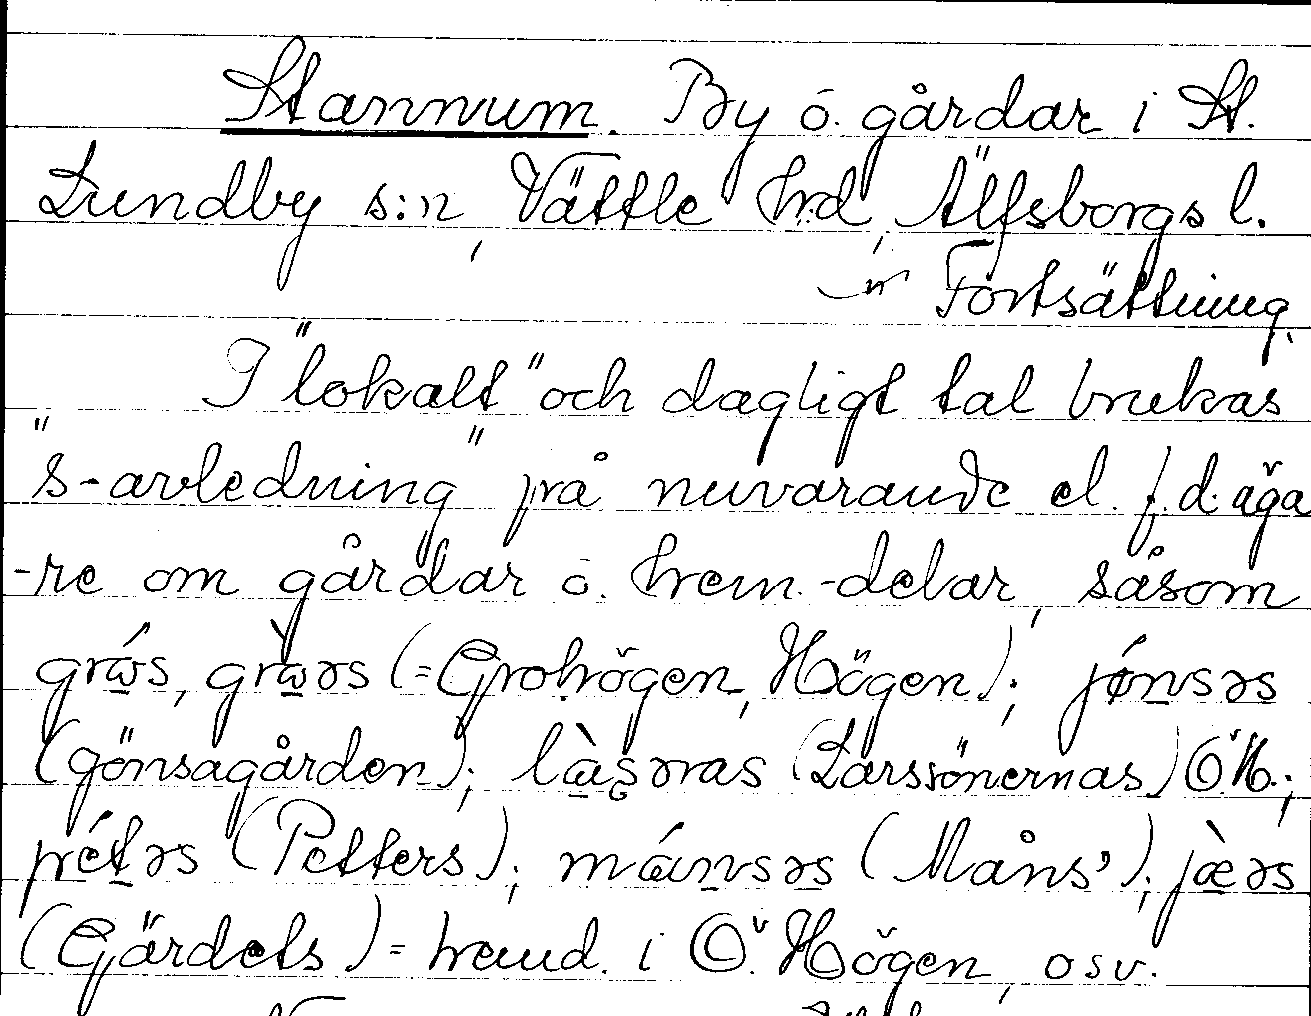 Stannum. By o. gårdar i St.
Lundby s:n, Vättle hrd, Älfsborgs l.
Fortsättning.
I "lokalt" och dagligt tal brukas
"s-avledning" på nuvarande el. f.d. äga
-re om gårdar o. hem.-delar, såsom
grɷ́s, grɷ̀əs (=Grohögen, Högen); jǿnsəs
(Gönsagården); làsənas (Larssönernas) Ö.H.;
pétəs (Petters); mánsəs (Måns'); jæ̀əs
(Gärdets) = hemd. i Ö. Högen, osv.